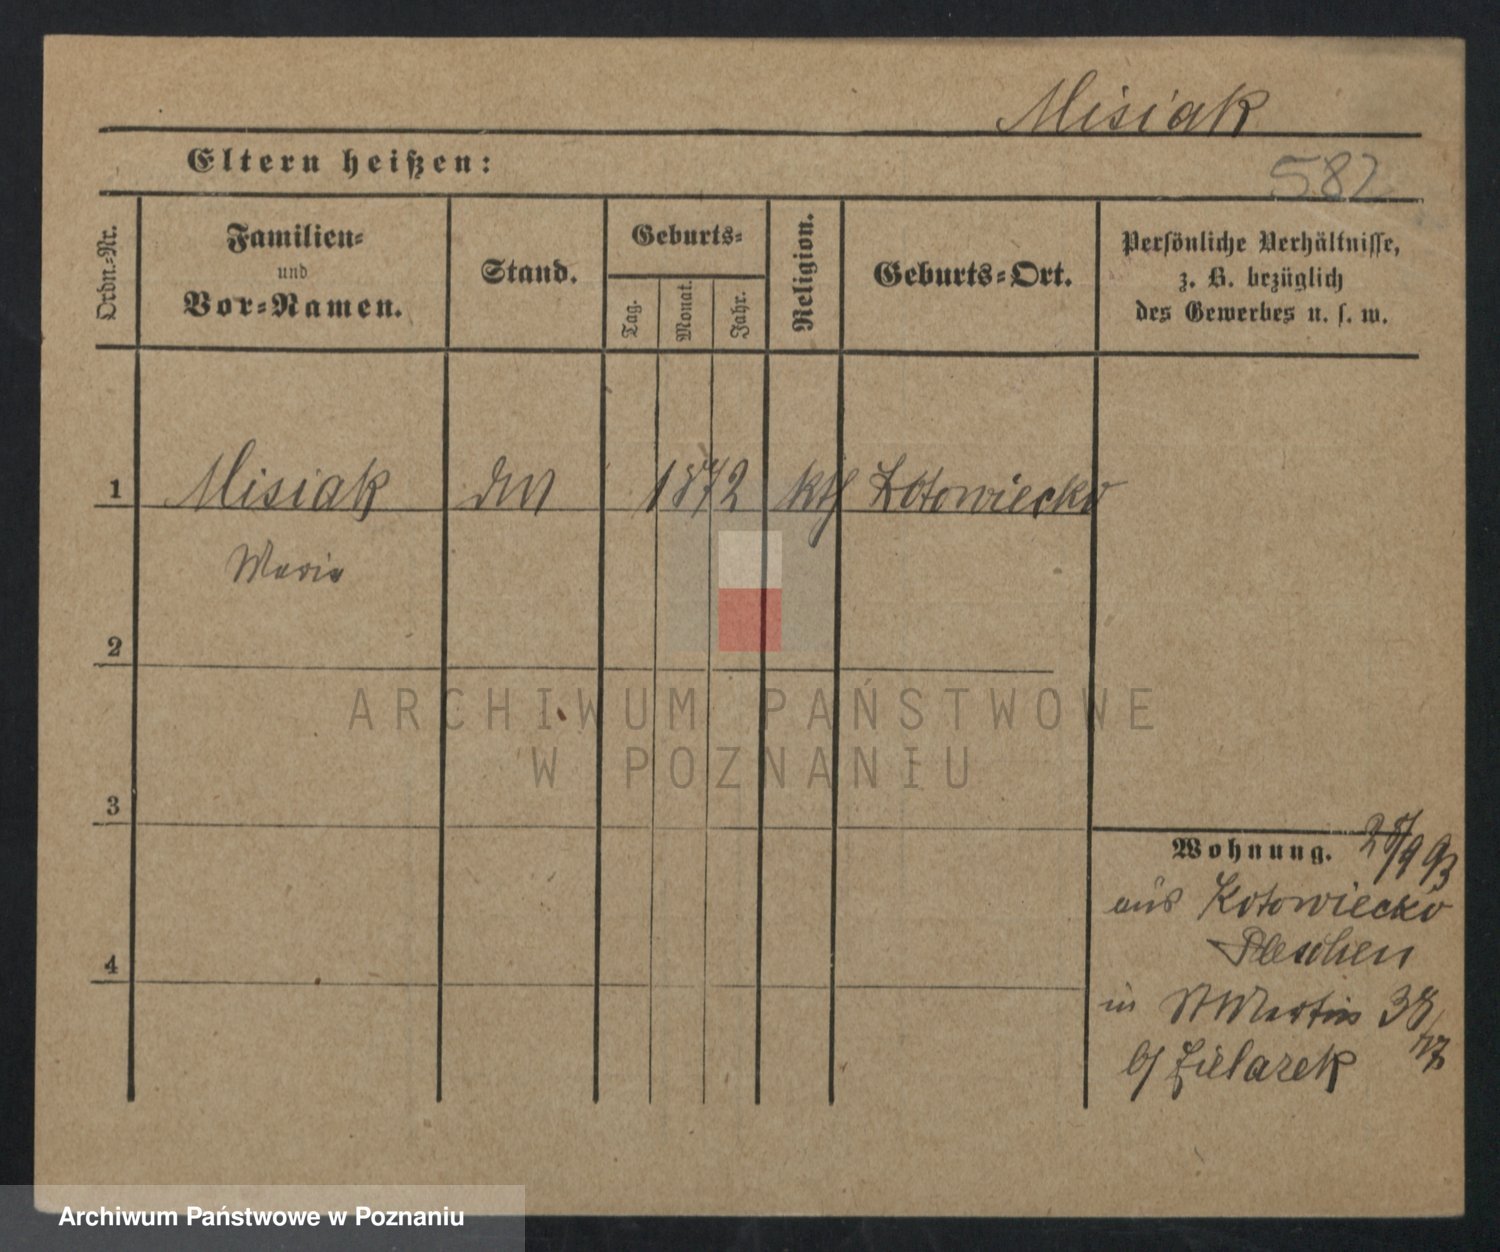 Misiak
Eltern heißen:
582
Ordn.-Nr.
Familien-
und
Vor-Namen.
Stand.
Geburts-
Tag.
Monat.
Jahr.
Religion.
Geburts-Ort.
Persönliche Verhältnisse,
z. B. bezüglich
des Gewerbes u. s. w.
1 Misiak 1872 kth Kotowiecko
Maria
2
3
4
ARCHIWUM PAŃSTWOWE
W POZNANIU
Wohnung.
aus Kotowiecko
Pleschen
in St Martin 38
b/ Zielazek
Archiwum Państwowe w Poznaniu